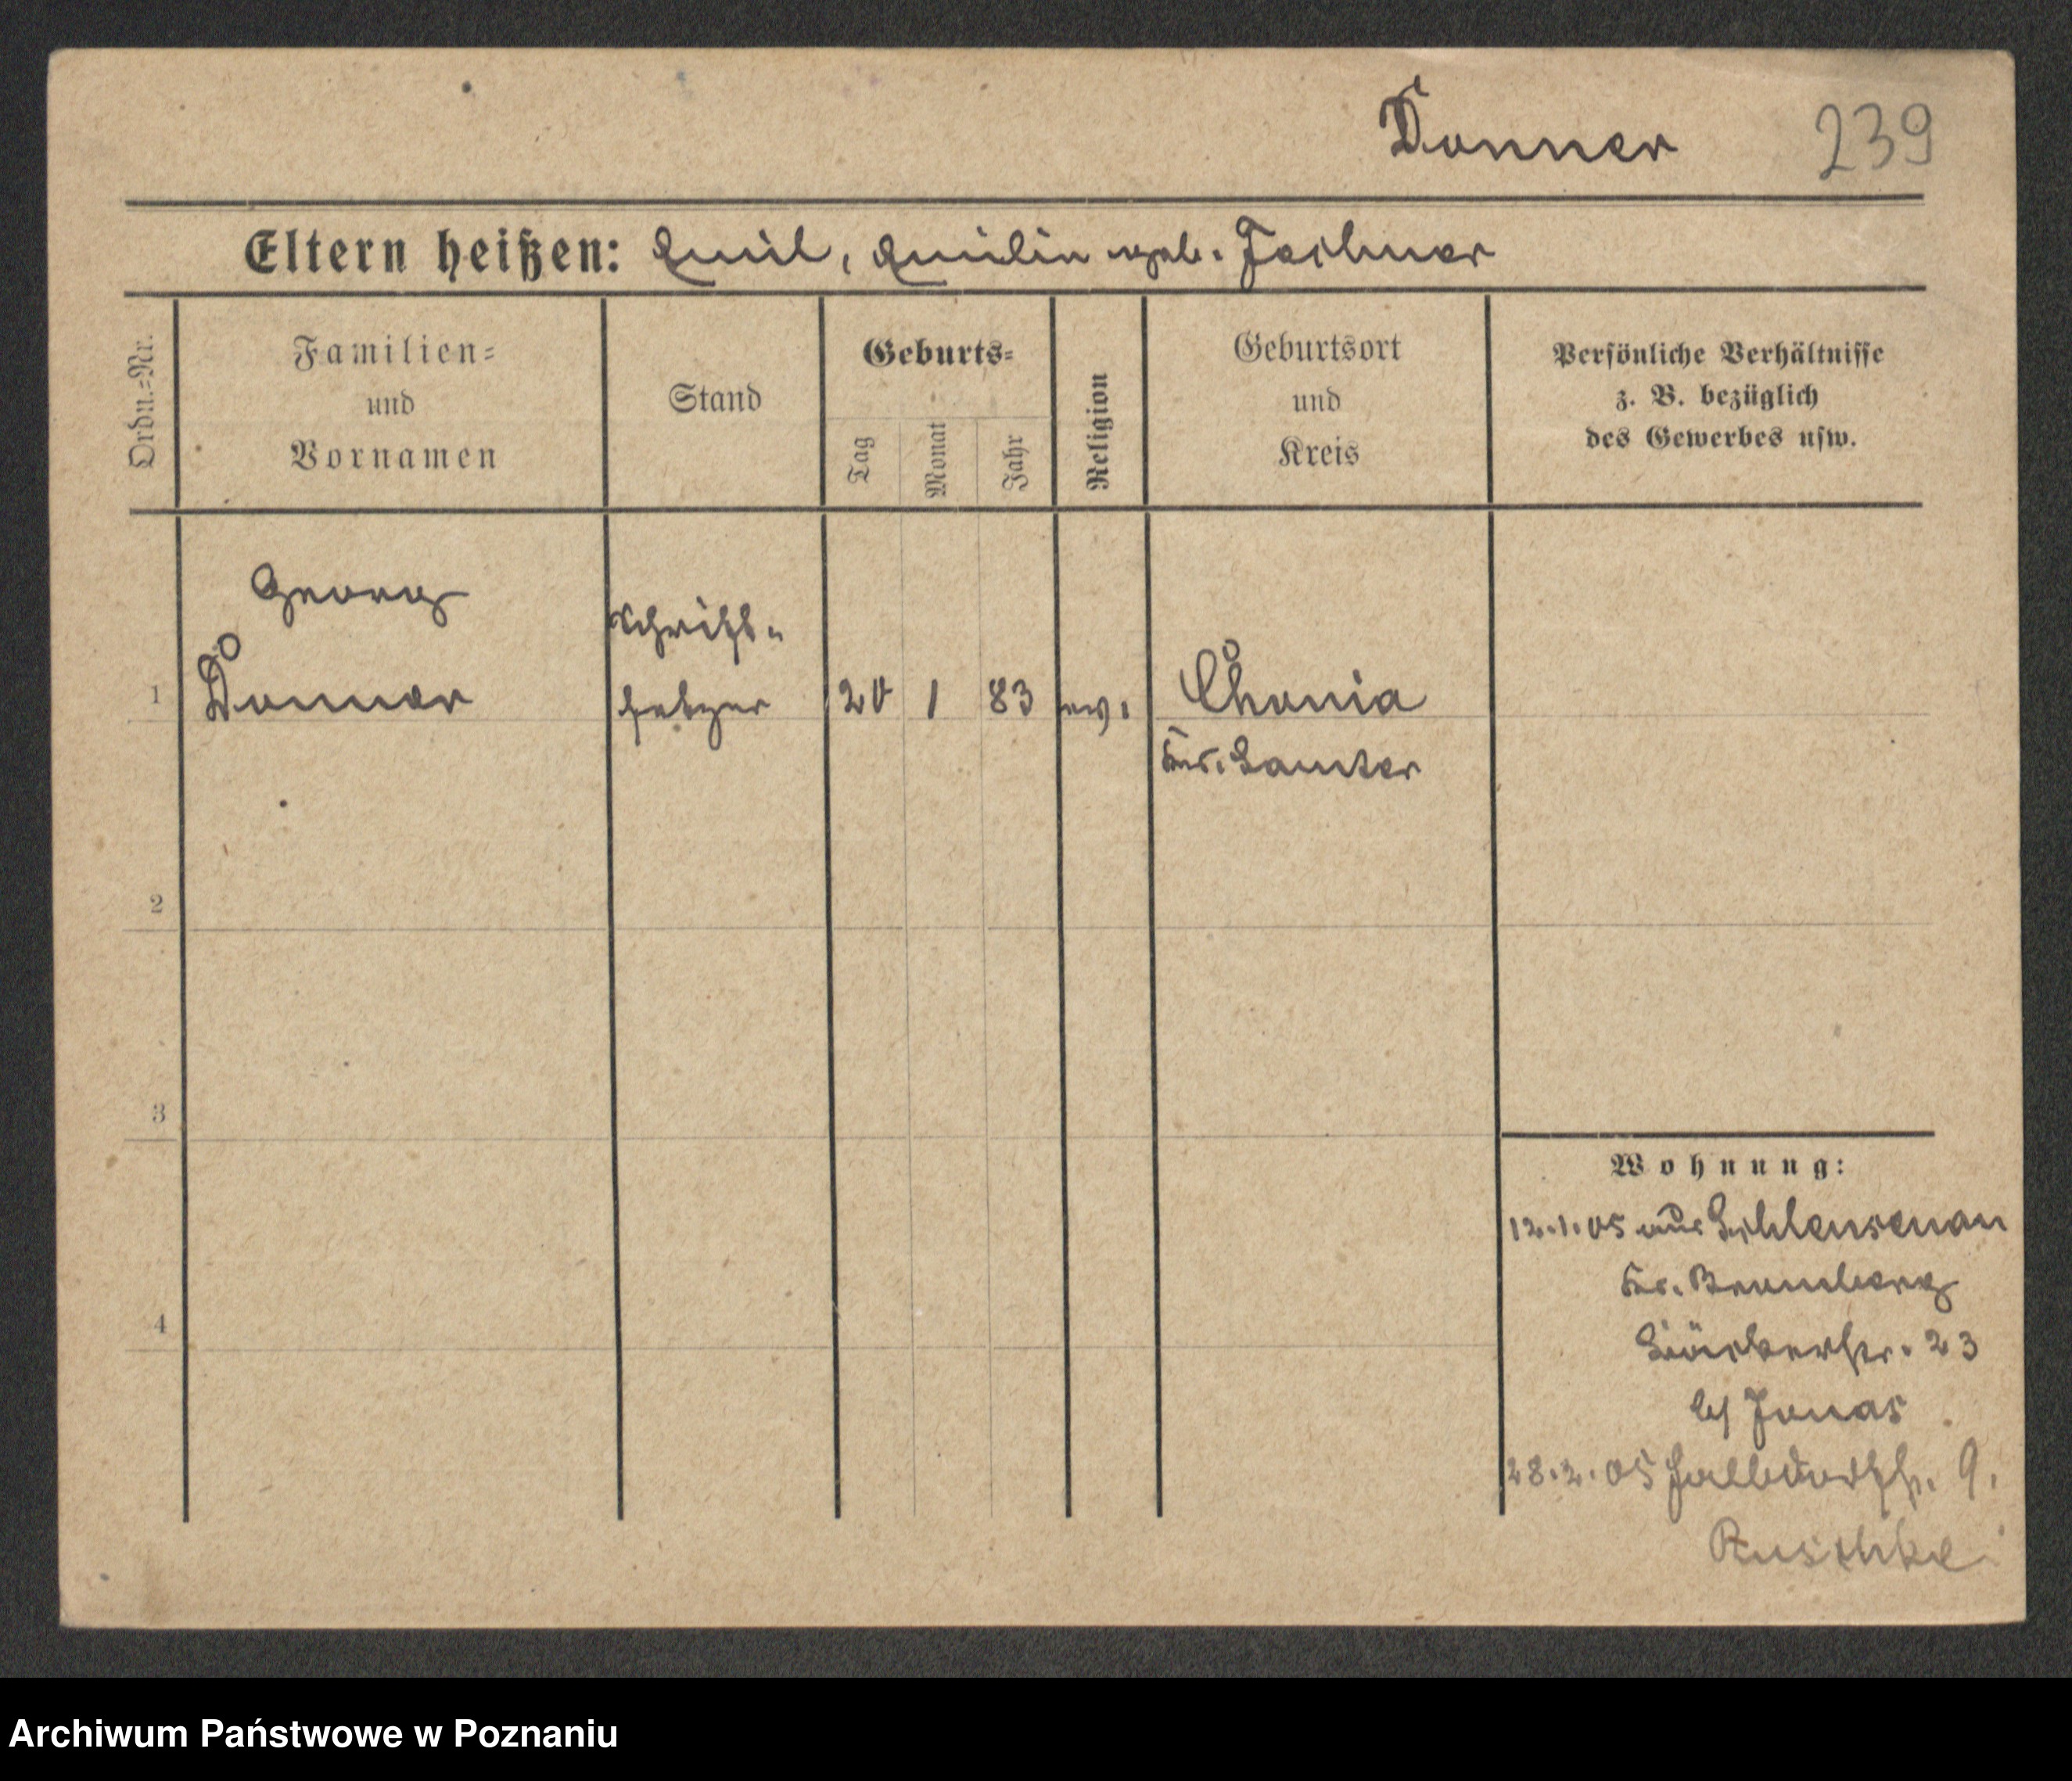 Donner 239
Eltern heißen: Emil, Emilie geb. Fechner
Ordn.=Nr.
Familien=
und
Vornamen
Stand
Geburts=
Tag
Monat
Jahr
Religion
Geburtsort
und
Kreis
Persönliche Verhältnisse
z. B. bezüglich
des Gewerbes usw.
Georg
Schrift-
1 Donner setzer 20 1 83 ev. Chonia
Krs. Samter
2
3
4
Wohnung:
12.1.05 aus
Kr. Bromberg
23
b/ Jonas
28.2.05 Halbdorfstr. 9.
Ruschke
Archiwum Państwowe w Poznaniu